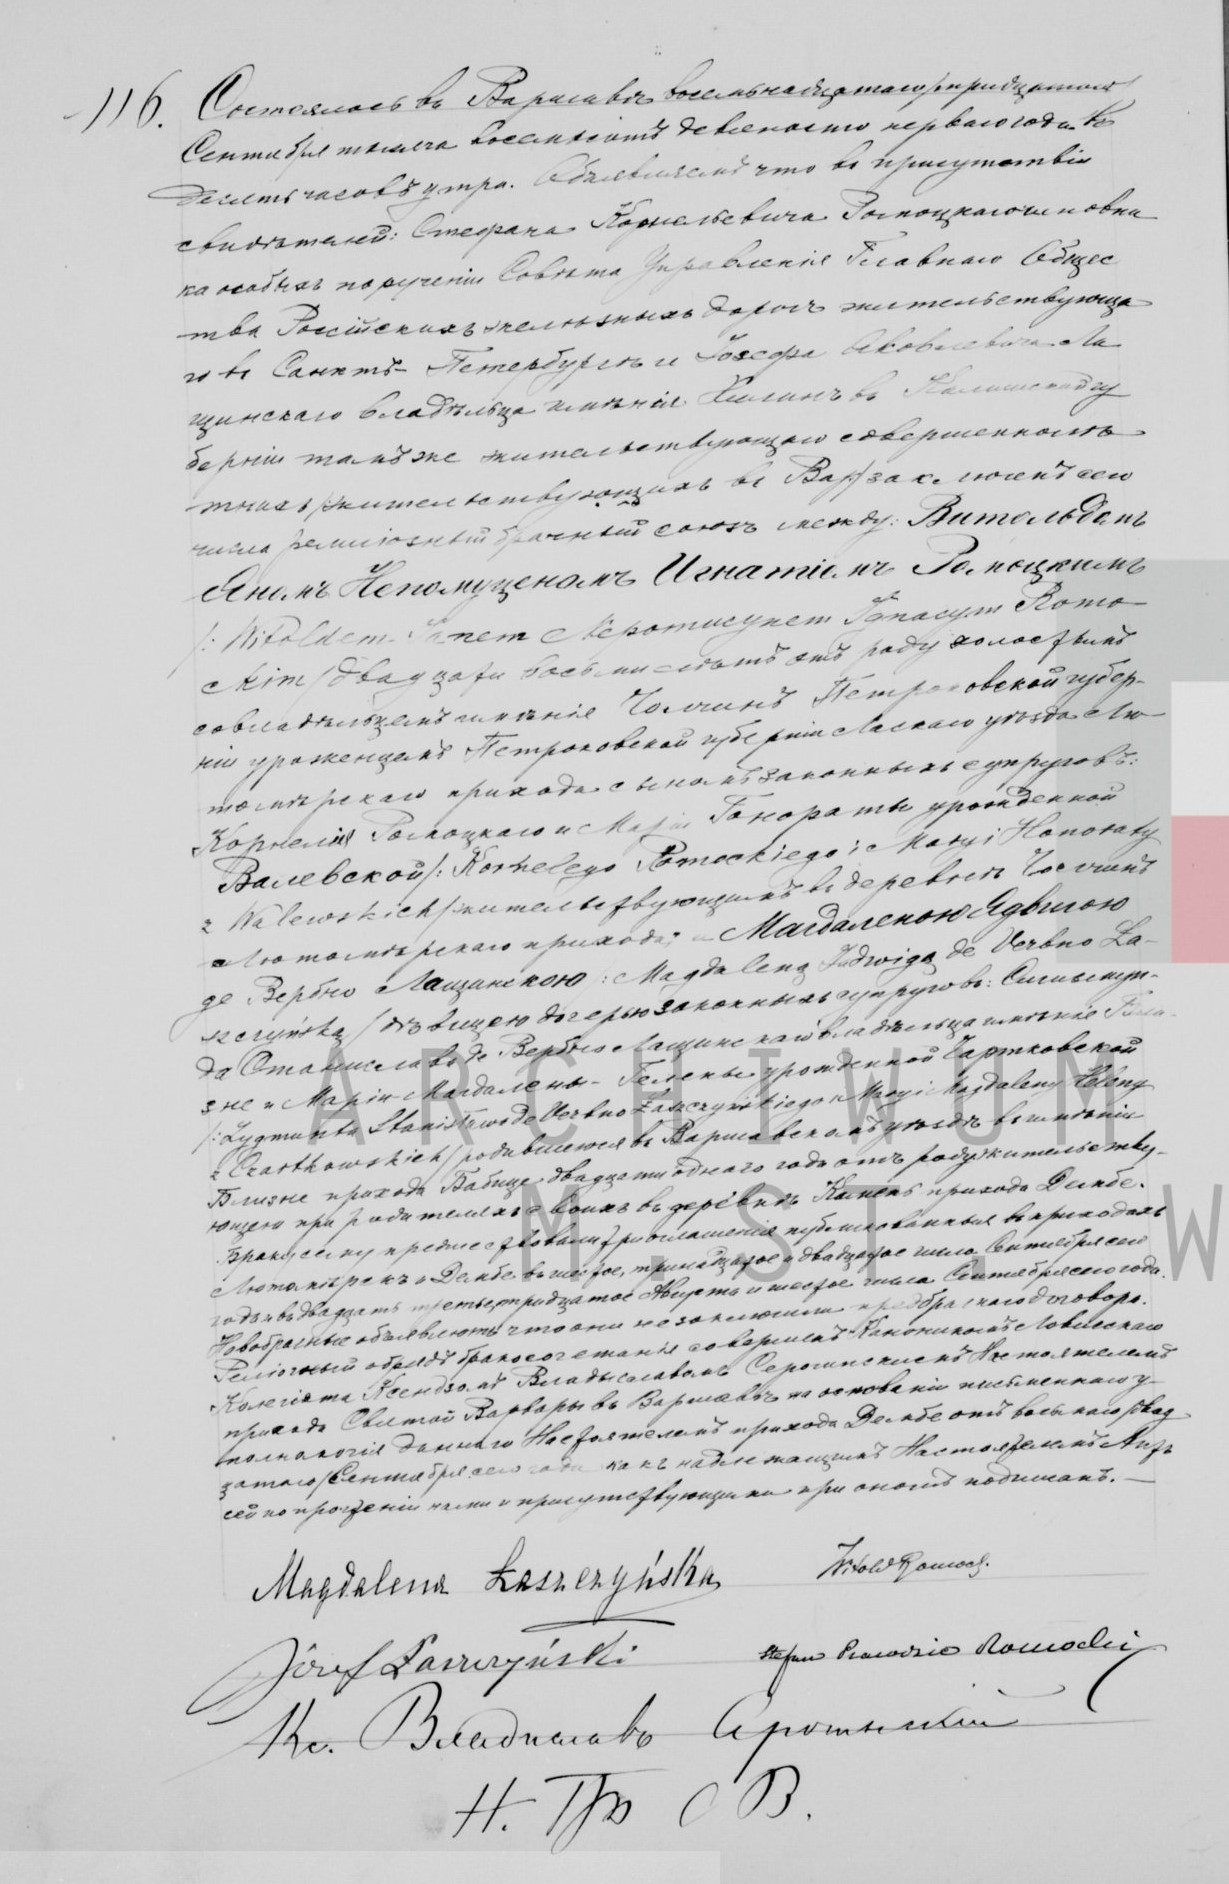 116. Состоялось въ Варшавѣ восемнадцатаго /тридцатаго/
Сентября тысяча восемьсотъ девяносто перваго года въ
десять часовъ утра. Объявляемъ что въ присутствіи
свидѣтелей: Стефана Корнельевича Ромоцкаго чиновни
ка особыхъ порученій Совѣта Управленія Главнаго Общес
тва Россійскихъ желѣзныхъ дорогъ жительствующа
го въ Санктъ-Петербургѣ и Іозефа Яковлевича Ла
щинскаго владѣльца имѣнія въ Калишской гу
берніи тамъ же жительствующаго совершеннолѣ
тнихъ /жительствующихъ въ Вар/ заключенъ сего
числа религіозный брачный союзъ между: Витольдомъ
Яномъ Непомуценомъ Игнатіемъ Ромоцкимъ
/: Witoldem Janem Nepomucynem Ignacym Romo
ckim/ двадцати восьми лѣтъ отъ роду холостымъ
совладѣльцемъ имѣнія Петроковской губер-
ніи уроженцемъ Петроковской губерніи Ласкаго уѣзда Лю
томѣрскаго прихода сыномъ законныхъ супруговъ:
Корнелія Ромоцкаго и Маріи Гонораты урожденной
Валевской /: Kornelego Romockiego i Maryi Honoraty
z Walewskich/ жительствующимъ въ деревнѣ
Лютомѣрскаго прихода; и Магдаленою Ядвигою
де Вербно Лащинскою /: Magdaleną Jadwigą de Verbno Ła-
szczyńską/ дѣвицею дочерью законныхъ супруговъ: Сигизмун-
да Станиславо де Вербно Лащинскаго владѣльца имѣнія
зне и Маріи-Магдалены-Гелены урожденной Чартковской
/: Zygmunta Stanisława de Verbno Łaszczyńskiego i Maryi Magdaleny Heleny
z Czartkowskich/ родившеюся въ Варшавскомъ уѣздѣ въ имѣніи
Близне прихода Бабице двадцати одного года отъ роду жительству-
ющею при родителяхъ своихъ въ деревнѣ Камень прихода Дембе.
Браку сему предшествовали три оглашенія публикованныя въ приходахъ
Лютомѣрскъ и Дембе въ шестое, тринадцатое и двадцатое числа Сентября сего
года и въ двадцать третье, тридцатое Августа и шестое числа Сентября сего года.
Новобрачные объявляютъ что они не заключили предбрачнаго договора.
Религіозный обрядъ бракосочетанія совершенъ Каноникомъ Ловичскаго
Колегіята Ксендзомъ Владиславомъ Серошинскимъ Настоятелемъ
прихода Святой Варвары въ Варшавѣ на основаніи письменнаго у-
полномочія даннаго Настоятелемъ прихода Дембе отъ восьмаго /двад
цатаго/ Сентября сего года какъ надлежащимъ Настоятелемъ Актъ
сей по прочтеніи нами и присутствующими при ономъ подписанъ.—
Magdalena Łaszczyńska Witold Romock.
Józef Łaszczyński Stefan Romocki
Кс. Владиславъ
Н. П. С В.